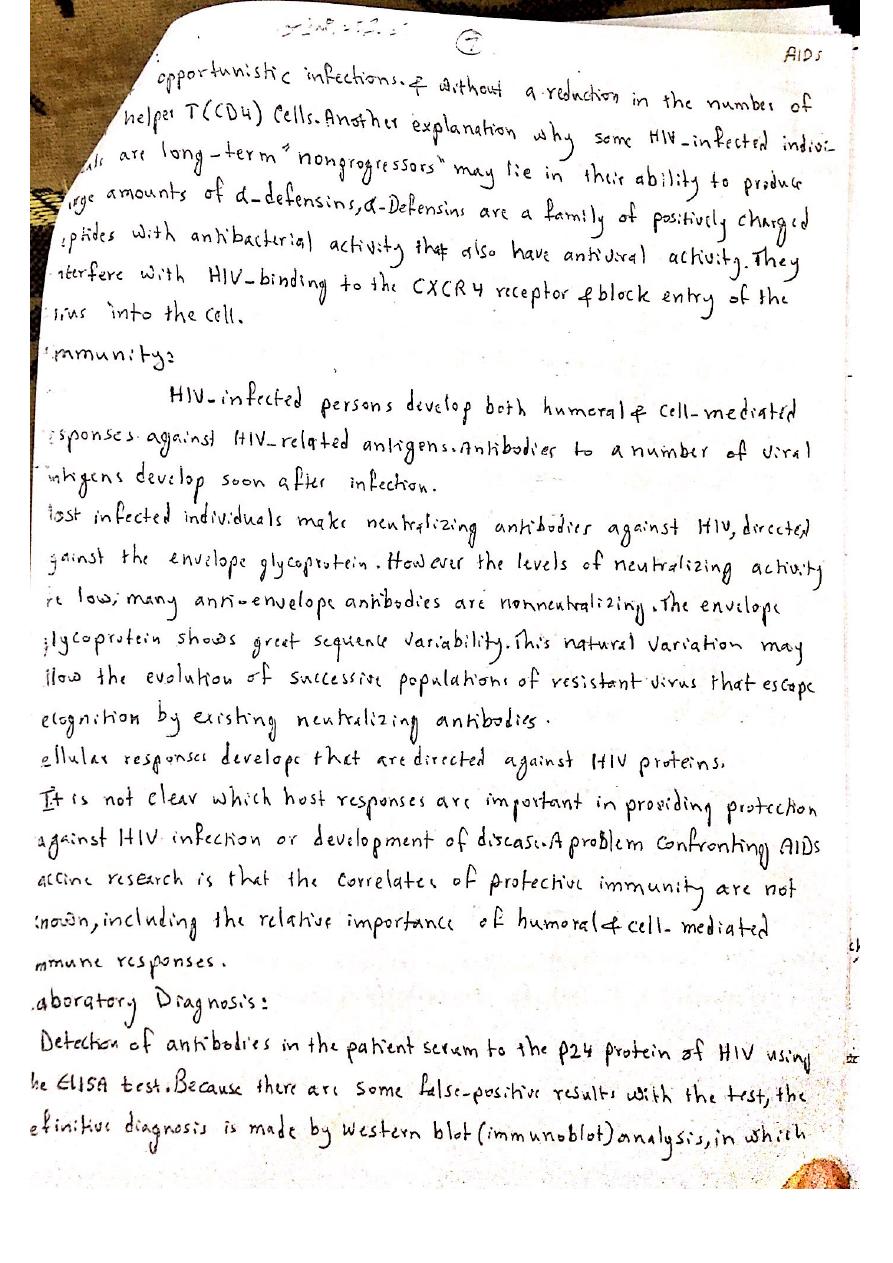 7
AIDS
opportunistic infections. & without a reduction in the number of
helper T(CD4) Cells. Another explanation why some HIV-infected indivi-
are long-term "nongrogressors" may lie in their ability to produce
rge amounts of α-defensins, α-Defensins are a family of positively charged
eptides with antibacterial activity that also have antiviral activity. They
nterfere with HIV-binding to the CXCR4 receptor & block entry of the
irus into the cell.
mmunity:
HIV-infected persons develop both humeral & cell-mediated
esponses against HIV-related antigens. Antibodies to a number of viral
ntigens develop soon after infection.
ost infected individuals make neutralizing antibodies against HIV, directed
gainst the envelope glycoprotein. However the levels of neutralizing activity
re low; many anti-envelope antibodies are nonneutralizing. The envelope
glycoprotein shows great sequence variability. This natural variation may
llow the evolution of successive populations of resistant virus that escape
ecognition by existing neutralizing antibodies.
ellular responses develope that are directed against HIV proteins.
It is not clear which host responses are important in providing protection
against HIV infection or development of disease. A problem confronting AIDS
accine research is that the correlates of protective immunity are not
known, including the relative importance of humoral & cell-mediated
mmune responses.
Laboratory Diagnosis:
Detection of antibodies in the patient serum to the p24 protein of HIV using
he ELISA test. Because there are some false-positive results with the test, the
efinitive diagnosis is made by Western blot (immunoblot) analysis, in which